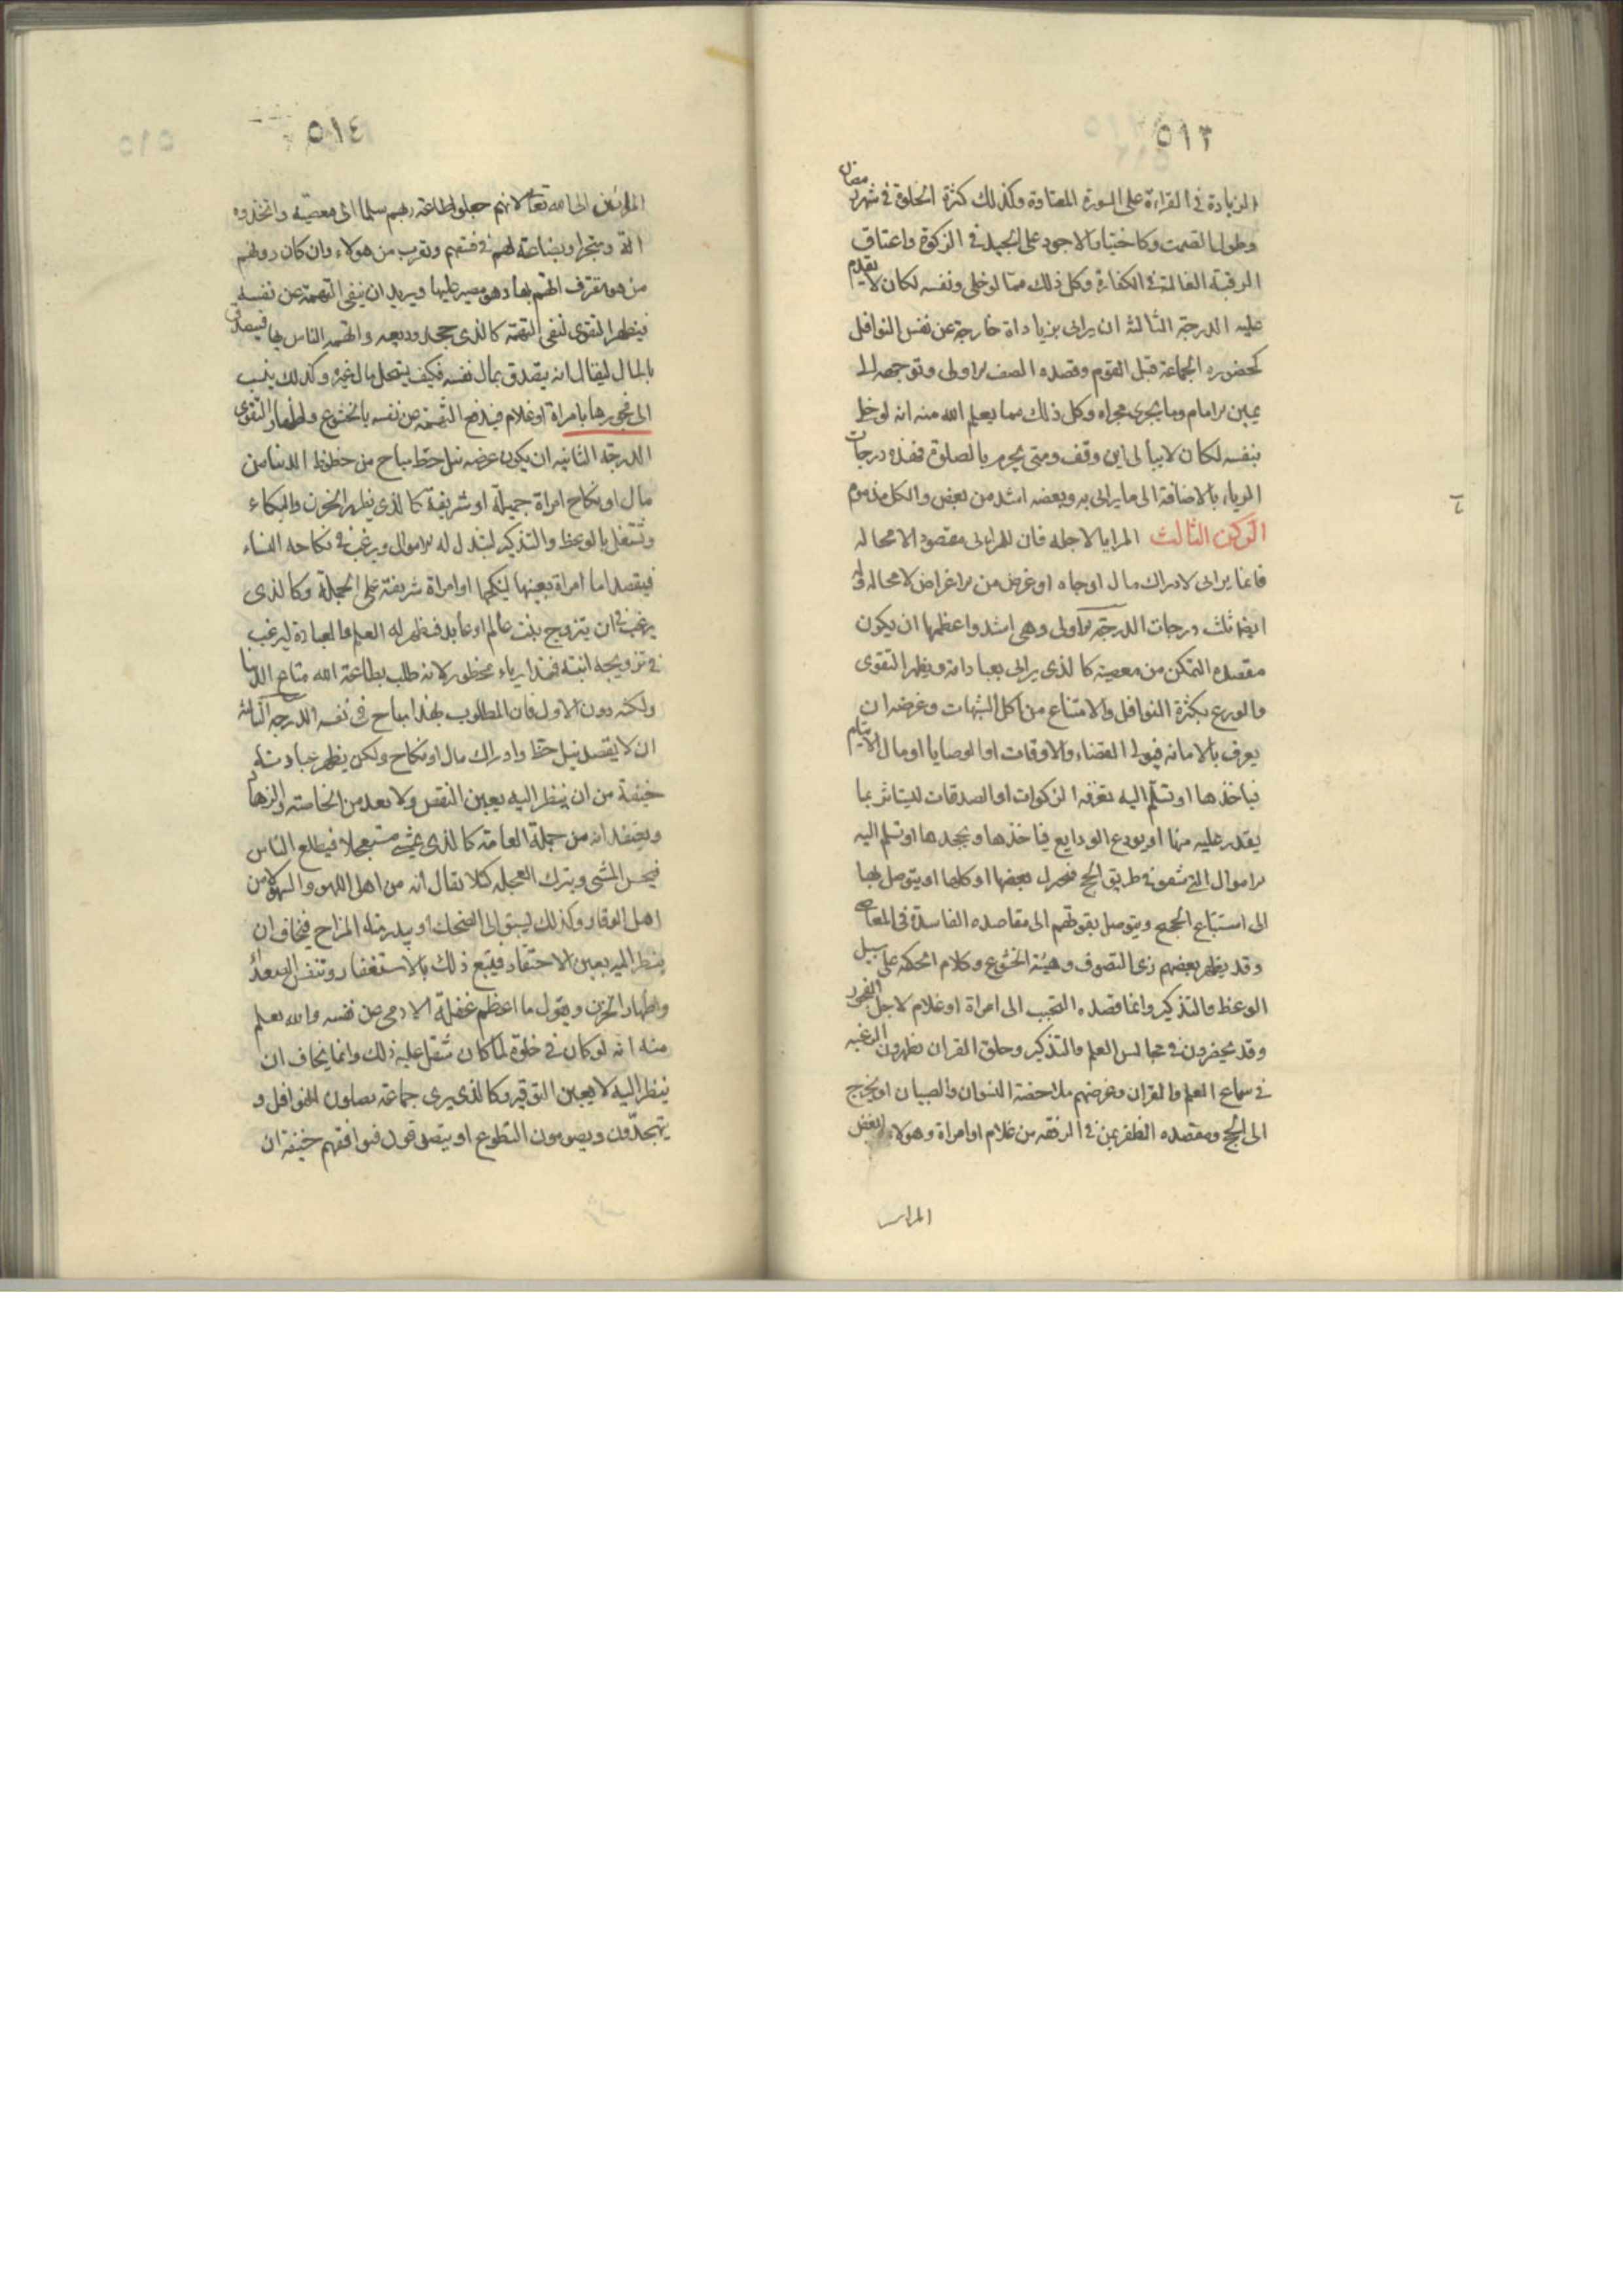 ٥١٣
الزيادة في القراءة على السورة المعتادة وكذلك كثرة الخلوة في شهر رمضان
وطول الصمت وكاختيار الاجود على الجيد في الزكوة واعتاق
الرقبة الغالية في الكفارة وكل ذلك مما لو خلى ونفسه لكان لا يقدم
عليه الدرجة الثالثة ان يرائى بزيادات خارجة عن نفس النوافل
كحضوره الجماعة قبل القوم وقصده الصف الاولى وتوجهه الى
يمين الامام وما يجرى مجراه وكل ذلك مما يعلم الله منه انه لو خلى
بنفسه لكان لا يبالى اين وقف ومتى يحرم بالصلوة فهذه درجات
الرياء بالاضافة الى ما يرائى به وبعضه اشد من بعض والكل مذموم
الركن الثالث المرايا لاجله فان للمرائى مقصودا لا محاله
فانما يرائى لادراك مال او جاه او غرض من الاغراض لا محالة وله
ايضا ثلث درجات الدرجة الاولى وهى اشد واعظمها ان يكون
مقصده التمكن من معصية كالذى يرائى بعباداته ويظهر التقوى
والورع بكثرة النوافل والامتناع من اكل الشبهات وغرضه ان
يعرف بالامانه فيولى القضاء والاوقات او الوصايا او مال الايتام
فياخذها او تسلم اليه تفرقه الزكوات او الصدقات ليستاثر بما
يقدر عليه منها او يودع الودايع فياخذها ويجحدها او تسلم اليه
الاموال التي تنفق في طريق الحج فيخزل بعضها او كلها او يتوصل بها
الى استتباع الحجيج ويتوصل بقوتهم الى مقاصده الفاسدة في المعاصى
وقد يظهر بعضهم زى التصوف وهيئة الخشوع وكلام الحكمه على سبيل
الوعظ والتذكير وانما قصده التحبب الى امراة او غلام لاجل الفجور
وقد يحضرون في مجالس العلم والتذكير وحلق القران يظهرون الرغبه
في سماع العلم والقران وغرضهم ملاحضة النسوان والصبيان او يخرج
الى الحج ومقصده الظفر بمن في الرفقه من غلام او امراة وهولاء ابغض
٥١٤
المرائين الى الله تعالى لانهم جعلوا طاعة ربهم سلما الى معصيته واتخذوه
الة ومتجرا وبضاعة لهم في فسقهم ويقرب من هولاء وان كان دونهم
من هو مقترف اتهم بها وهو مصر عليها ويريد ان ينفى التهمة عن نفسه
فيظهر التقوى لنفى التهمة كالذى جحد وديعه واتهمه الناس بها فيتصدق
بالمال ليقال انه يتصدق بمال نفسه فكيف يستحل مال غيره وكذلك ينسب
الى فجور بها بامراة او غلام فيدفع التهمة عن نفسه بالخشوع واظهار التقوى
الدرجة الثانيه ان يكون غرضه نيل حظ مباح من حظوظ الدنيا من
مال او نكاح امراة جميلة او شريفة كالذى يظهر الحزن والبكاء
وتشتغل بالوعظ والتذكير لتبذل له الاموال ويرغب في نكاحه النساء
فيقصد اما امراة بعينها لينكحها او امراة شريفة على الجملة وكالذى
يرغب في ان يتزوج بنت عالم او عابد فيظهر له العلم والعبادة ليرغب
في تزويجه ابنته فهذا رياء محظور لانه طلب بطاعة الله متاع الدنيا
ولكنه دون الاول فان المطلوب بهذا مباح في نفسه الدرجه الثالثة
ان لا يقصد نيل حظ وادراك مال او نكاح ولكن يظهر عبادته
خيفة من ان ينظر اليه بعين النقص ولا يعد من الخاصة والزهاد
ويعتقد انه من جملة العامة كالذى يمشى مستعجلا فيطلع الناس
فيحسن المشى ويترك العجله كيلا يقال انه من اهل اللهو والسهو لا من
اهل الوقار وكذلك يسبق الى الضحك او يبدر منه المزاح فيخاف ان
ينظر اليه بعين الاحتقار فيتبع ذلك بالاستغفار وتنفس الصعداء
واظهار الحزن ويقول ما اعظم غفلة الادمى عن نفسه والله يعلم
منه انه لو كان في خلوة لما كان تثقل عليه ذلك وانما يخاف ان
ينظر اليه لا بعين التوقير وكالذى يرى جماعة يصلون النوافل و
يتهجدون ويصومون التطوع او يتصدقون فيوافقهم خيفة ان